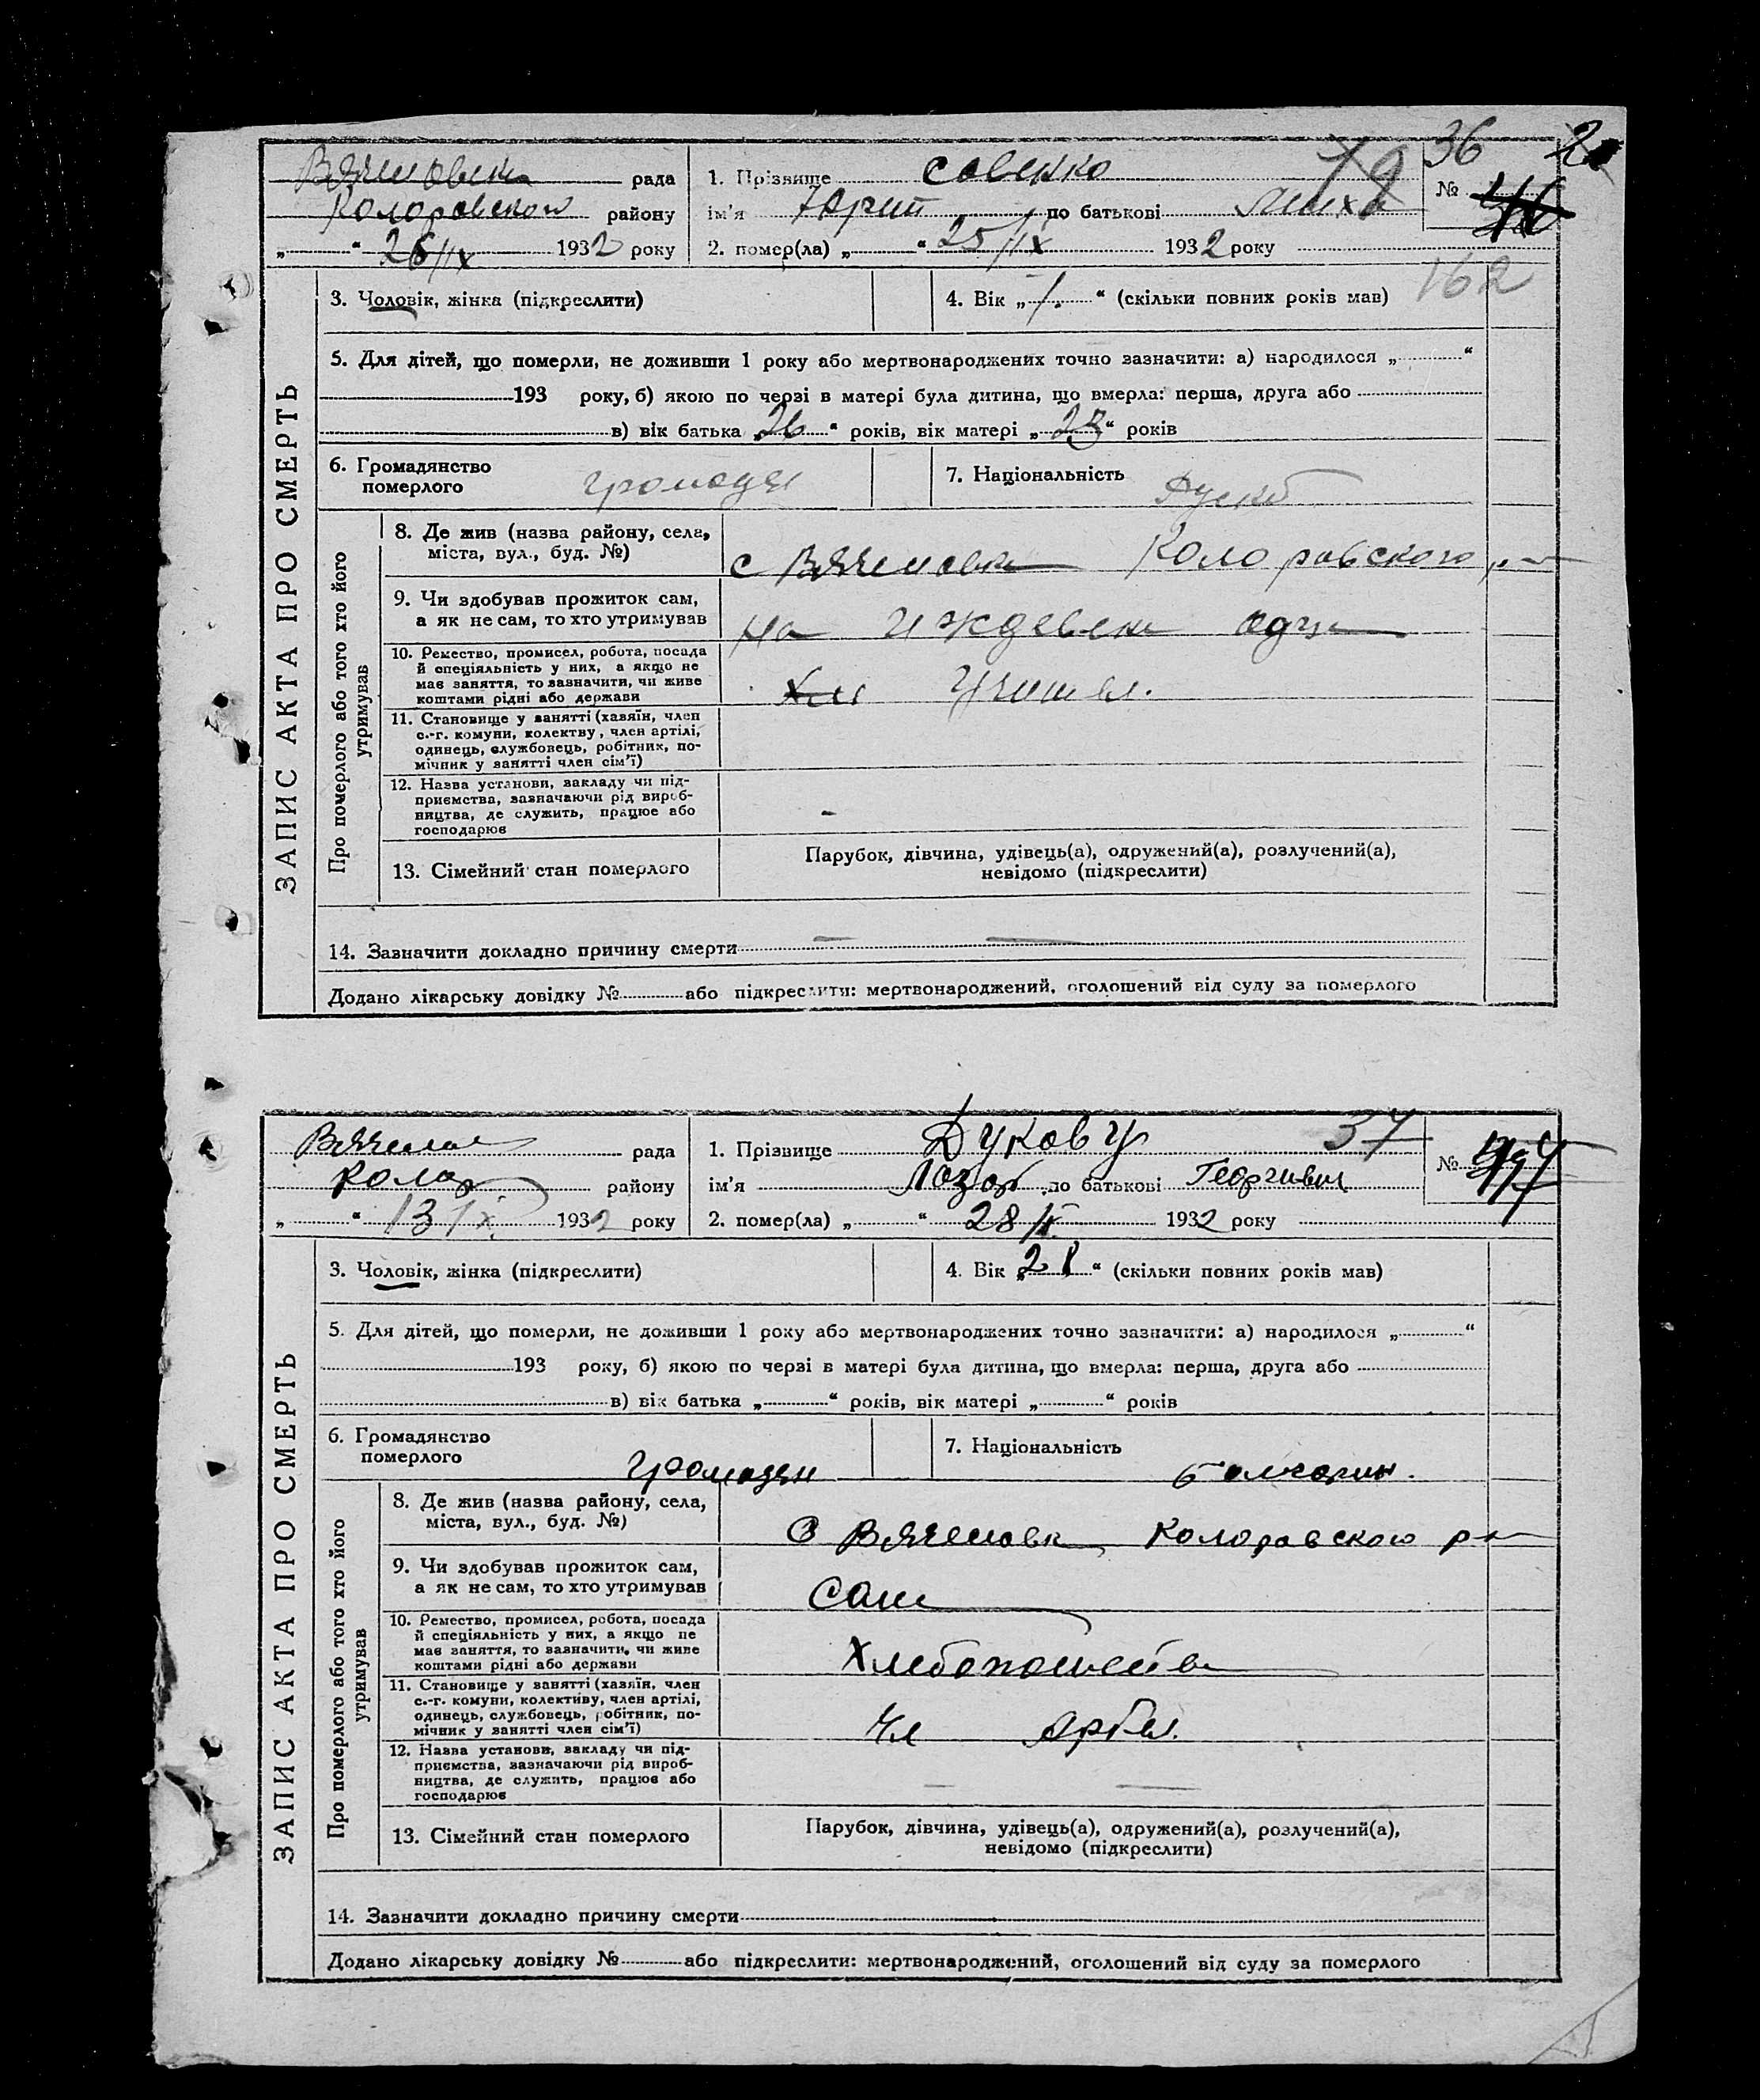 36
рада 1. Прізвище Совенко
Коларовского району ім'я Юрий по батькові Мих №
„ “ 26/IX 1932 року 2. помер(ла) „ “ 25/IX 1932 року
162
3. Чоловік, жінка (підкреслити) 4. Вік „1.“ (скільки повних років мав)
5. Для дітей, що померли, не доживши 1 року або мертвонароджених точно зазначити: а) народилося „ “
193 року, б) якою по черзі в матері була дитина, що вмерла: перша, друга або
в) вік батька „26“ років, вік матері „23“ років
6. Громадянство
померлого громадян 7. Національність
ЗАПИС АКТА ПРО СМЕРТЬ
Про померлого або того хто його
утримував
8. Де жив (назва району, села,
міста, вул., буд. №) с Вячеловка Коларовского р-н
9. Чи здобував прожиток сам,
а як не сам, то хто утримував на иждевени отца
10. Ремество, промисел, робота, посада
й спеціяльність у них, а якщо не
має заняття, то зазначити, чи живе
коштами рідні або держави Учител.
11. Становище у занятті (хазяїн, член
с.-г. комуни, колективу, член артілі,
одинець, службовець, робітник, по-
мічник у занятті член сім'ї)
12. Назва установи, закладу чи під-
приємства, зазначаючи рід вироб-
ництва, де служить, працює або
господарює -
13. Сімейний стан померлого Парубок, дівчина, удівець(а), одружений(а), розлучений(а),
невідомо (підкреслити)
14. Зазначити докладно причину смерти — —
Додано лікарську довідку № або підкреслити: мертвонароджений, оголошений від суду за померлого
рада 1. Прізвище 37
Колар району ім'я Лазар по батькові Георгивич №
„ “ 13/IX 1932 року 2. помер(ла) „ “ 28/II 1932 року
3. Чоловік, жінка (підкреслити) 4. Вік „21“ (скільки повних років мав)
5. Для дітей, що померли, не доживши 1 року або мертвонароджених точно зазначити: а) народилося „ “
193 року, б) якою по черзі в матері була дитина, що вмерла: перша, друга або
в) вік батька „ “ років, вік матері „ “ років
6. Громадянство
померлого громадян 7. Національність болгарин.
ЗАПИС АКТА ПРО СМЕРТЬ
Про померлого або того хто його
утримував
8. Де жив (назва району, села,
міста, вул., буд. №) С Вячеловк Коларовского р-н
9. Чи здобував прожиток сам,
а як не сам, то хто утримував сам
10. Ремество, промисел, робота, посада
й спеціяльність у них, а якщо не
має заняття, то зазначити, чи живе
коштами рідні або держави Хлебопашество
11. Становище у занятті (хазяїн, член
с.-г. комуни, колективу, член артілі,
одинець, службовець, робітник, по-
мічник у занятті член сім'ї) Чл артел.
12. Назва установи, закладу чи під-
приємства, зазначаючи рід вироб-
ництва, де служить, працює або
господарює — —
13. Сімейний стан померлого Парубок, дівчина, удівець(а), одружений(а), розлучений(а),
невідомо (підкреслити)
14. Зазначити докладно причину смерти
Додано лікарську довідку № або підкреслити: мертвонароджений, оголошений від суду за померлого